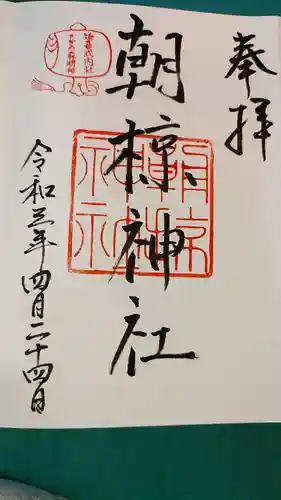 奉拝
朝椋神社
令和三年四月二十四日